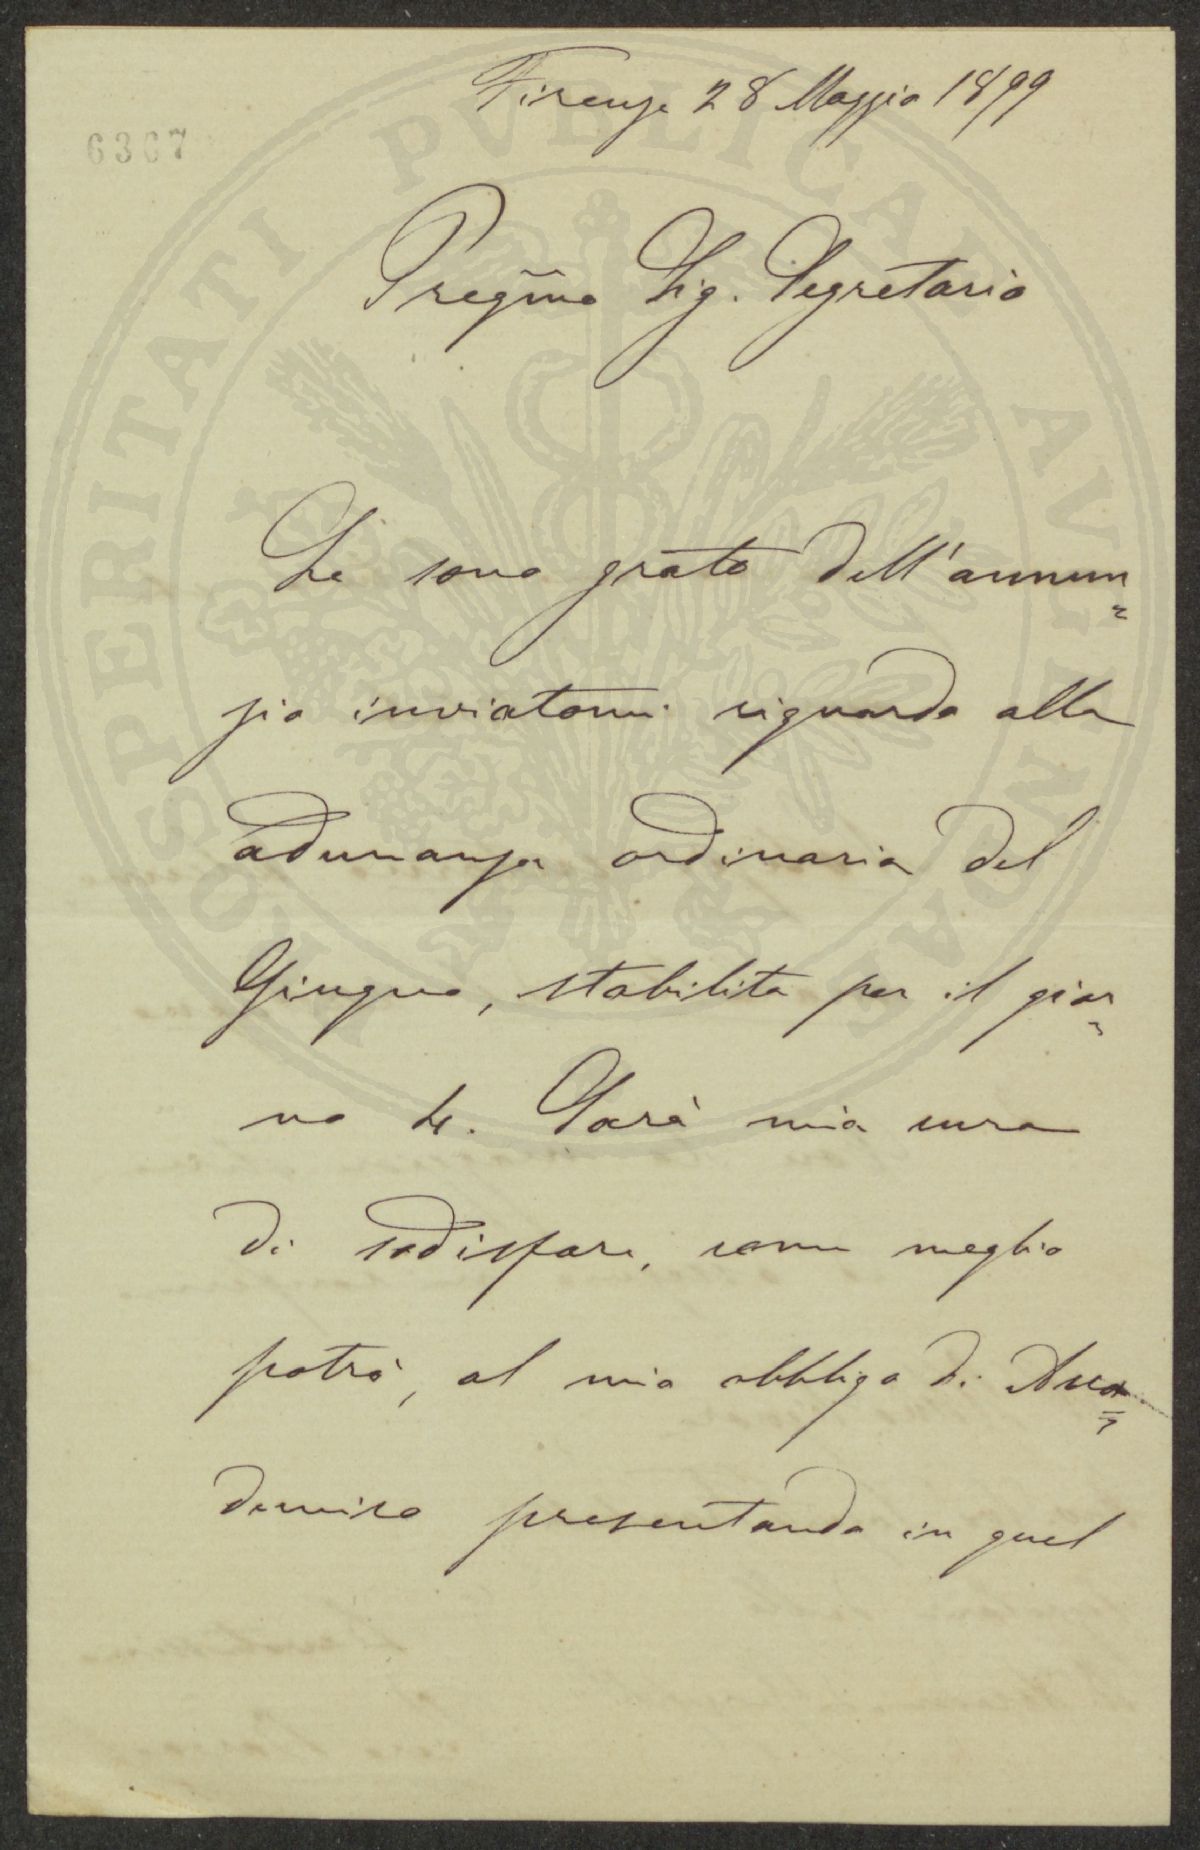 Firenze 28 Maggio 1899
6367
PROSPERITATI PVBLICAE AVGENDAE
Pregmo Sig. Segretario
Le sono grato dell'annun=
zio inviatomi riguardo alla
adunanza ordinaria del
Giugno, stabilita per il gior=
no 4. Sarà mia cura
di sodisfare, come meglio
potrò, al mio obbligo di Acca=
demico presentando in quel